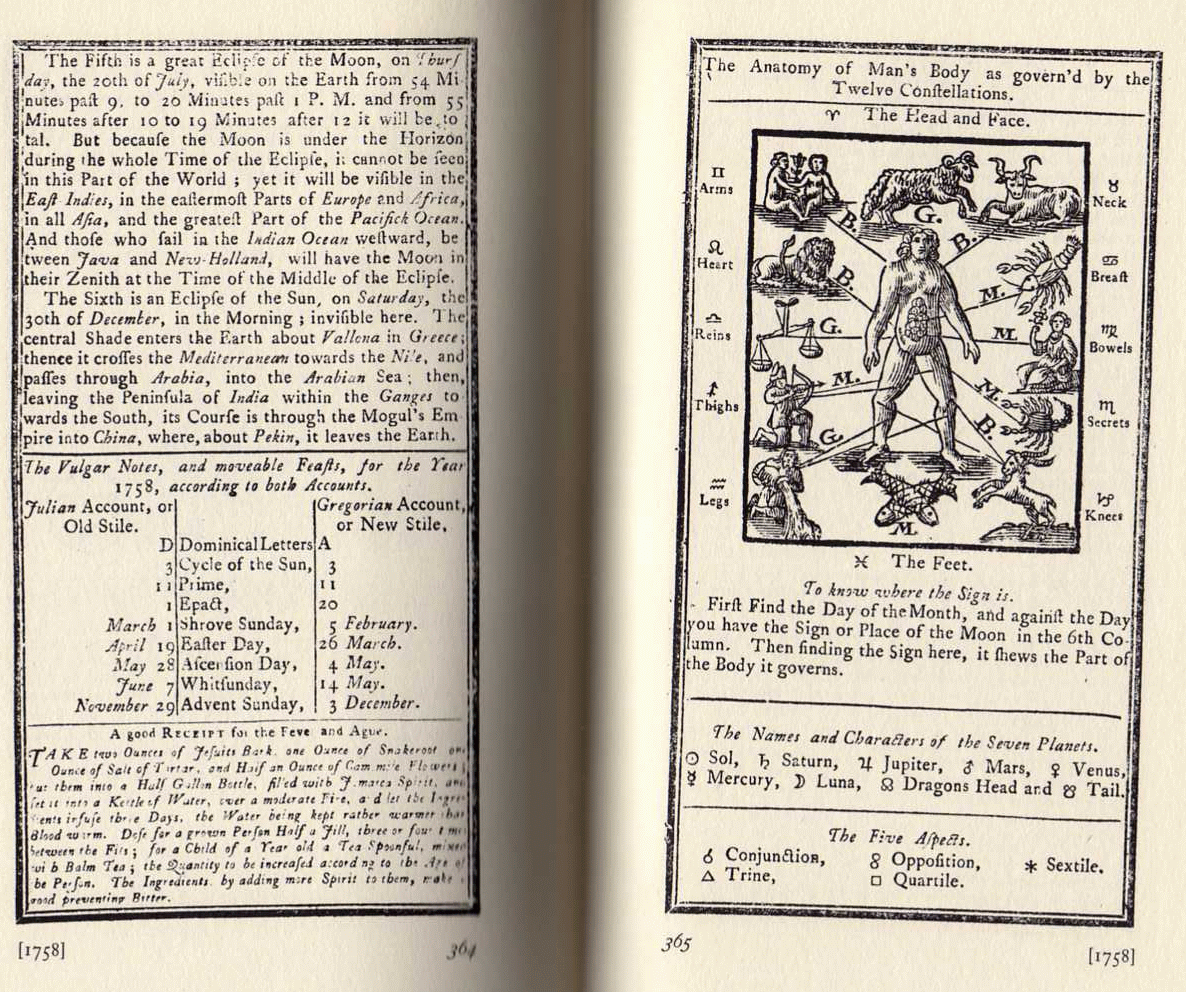 The Fifth is a great Eclipſe of the Moon, on Thurſ
day, the 20th of July, viſible on the Earth from 54 Mi
nutes paſt 9, to 20 Minutes paſt 1 P. M. and from 55
Minutes after 10 to 19 Minutes after 12 it will be to
tal. But becauſe the Moon is under the Horizon
during the whole Time of the Eclipſe, it cannot be ſeen
in this Part of the World ; yet it will be viſible in the
Eaſt Indies, in the eaſtermoſt Parts of Europe and Africa,
in all Aſia, and the greateſt Part of the Pacifick Ocean.
And thoſe who ſail in the Indian Ocean weſtward, be
tween Java and New-Holland, will have the Moon in
their Zenith at the Time of the Middle of the Eclipſe.
The Sixth is an Eclipſe of the Sun, on Saturday, the
30th of December, in the Morning ; inviſible here. The
central Shade enters the Earth about Vallona in Greece ;
thence it croſſes the Mediterranean towards the Nile, and
paſſes through Arabia, into the Arabian Sea ; then,
leaving the Peninſula of India within the Ganges to
wards the South, its Courſe is through the Mogul's Em
pire into China, where, about Pekin, it leaves the Earth.
The Vulgar Notes, and moveable Feaſts, for the Year
1758, according to both Accounts.
Julian Account, or Gregorian Account,
Old Stile. or New Stile,
D Dominical Letters A
3 Cycle of the Sun, 3
11 Prime, 11
1 Epact, 20
March 1 Shrove Sunday, 5 February.
April 19 Eaſter Day, 26 March.
May 28 Aſcenſion Day, 4 May.
June 7 Whitſunday, 14 May.
November 29 Advent Sunday, 3 December.
A good RECEIPT for the Feve and Ague.
TAKE two Ounces of Jeſuits Bark, one Ounce of Snakeroot one
Ounce of Salt of Tartar, and Half an Ounce of Cammmile Flowers ;
put them into a Half Gallon Bottle, filled with Jamaica Spirit, and
ſet it into a Kettle of Water, over a moderate Fire, and let the Ingre
dients infuſe three Days, the Water being kept rather warmer than
Blood warm. Doſe for a grown Perſon Half a Jill, three or four times
between the Fits ; for a Child of a Year old a Tea Spoonful, mixed
with Balm Tea ; the Quantity to be increaſed according to the Age of
the Perſon. The Ingredients by adding more Spirit to them, make a
good preventing Bitter.
[1758] 364
The Anatomy of Man's Body as govern'd by the
Twelve Conſtellations.
♈ The Head and Face.
♊ Arms
♌ Heart
♎ Reins
♐ Thighs
♒ Legs
B. G. B.
B. M.
G. M.
M. M.
G. B.
M.
♉ Neck
♋ Breaſt
♍ Bowels
♏ Secrets
♑ Knees
♓ The Feet.
To know where the Sign is.
Firſt Find the Day of the Month, and againſt the Day
you have the Sign or Place of the Moon in the 6th Co-
lumn. Then finding the Sign here, it ſhews the Part of
the Body it governs.
The Names and Characters of the Seven Planets.
☉ Sol, ♄ Saturn, ♃ Jupiter, ♂ Mars, ♀ Venus,
☿ Mercury, ☽ Luna, ☊ Dragons Head and ☋ Tail.
The Five Aſpects.
☌ Conjunction, ☍ Oppoſition, ⚹ Sextile.
△ Trine, □ Quartile.
365 [1758]